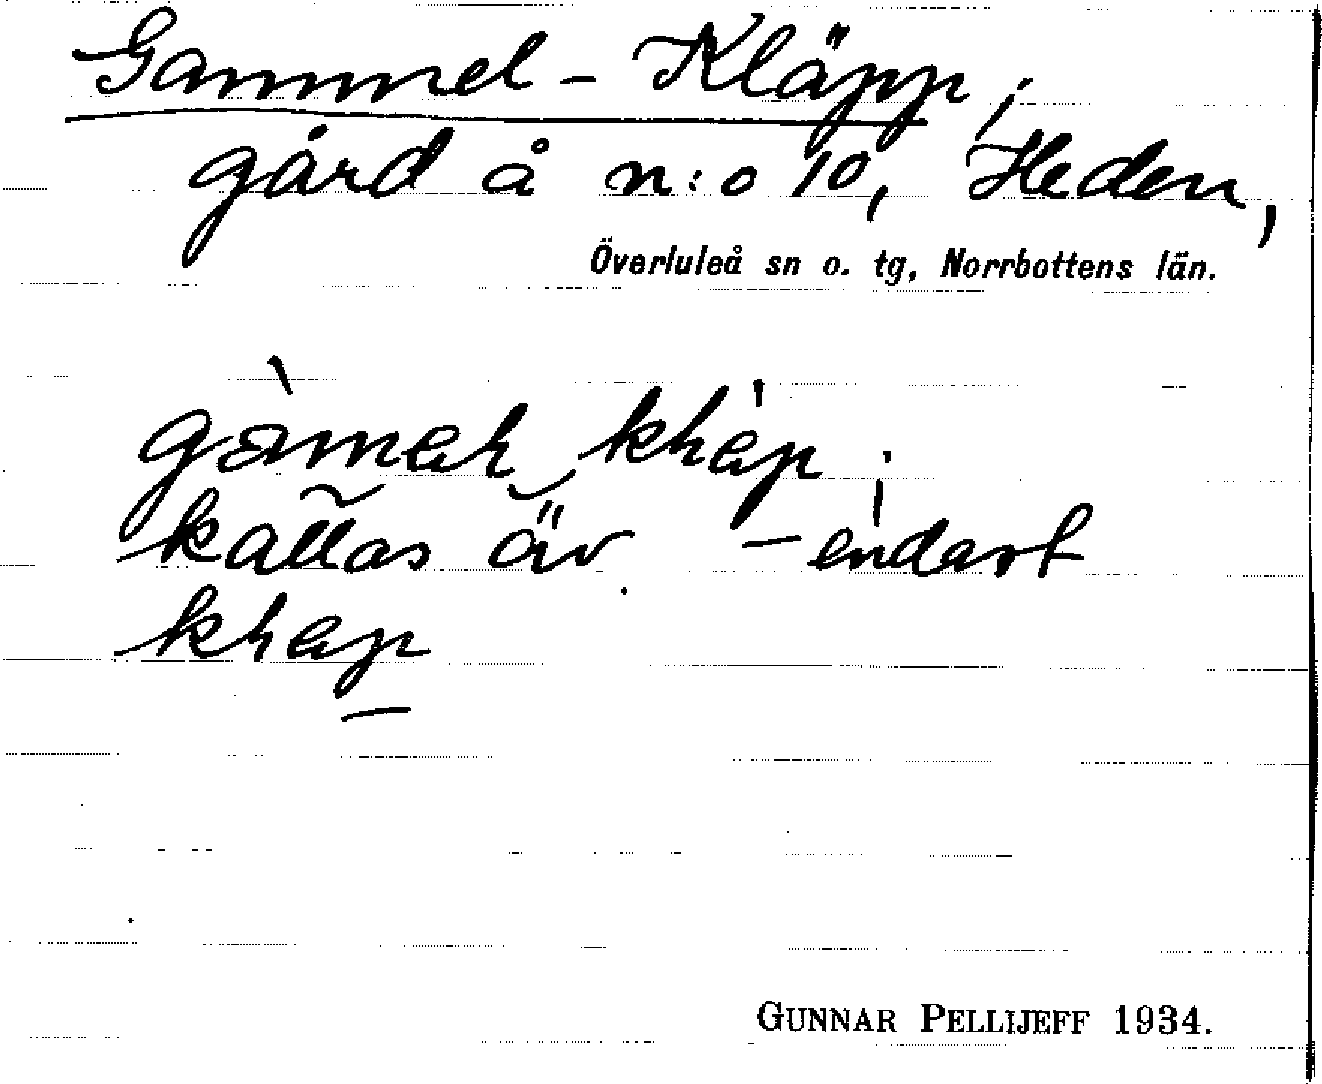 Gammel-Kläpp,
gård å n:o 10, Heden,
Överluleå sn o. tg, Norrbottens län.
kallas äv. – endast
GUNNAR PELLIJEFF 1934.